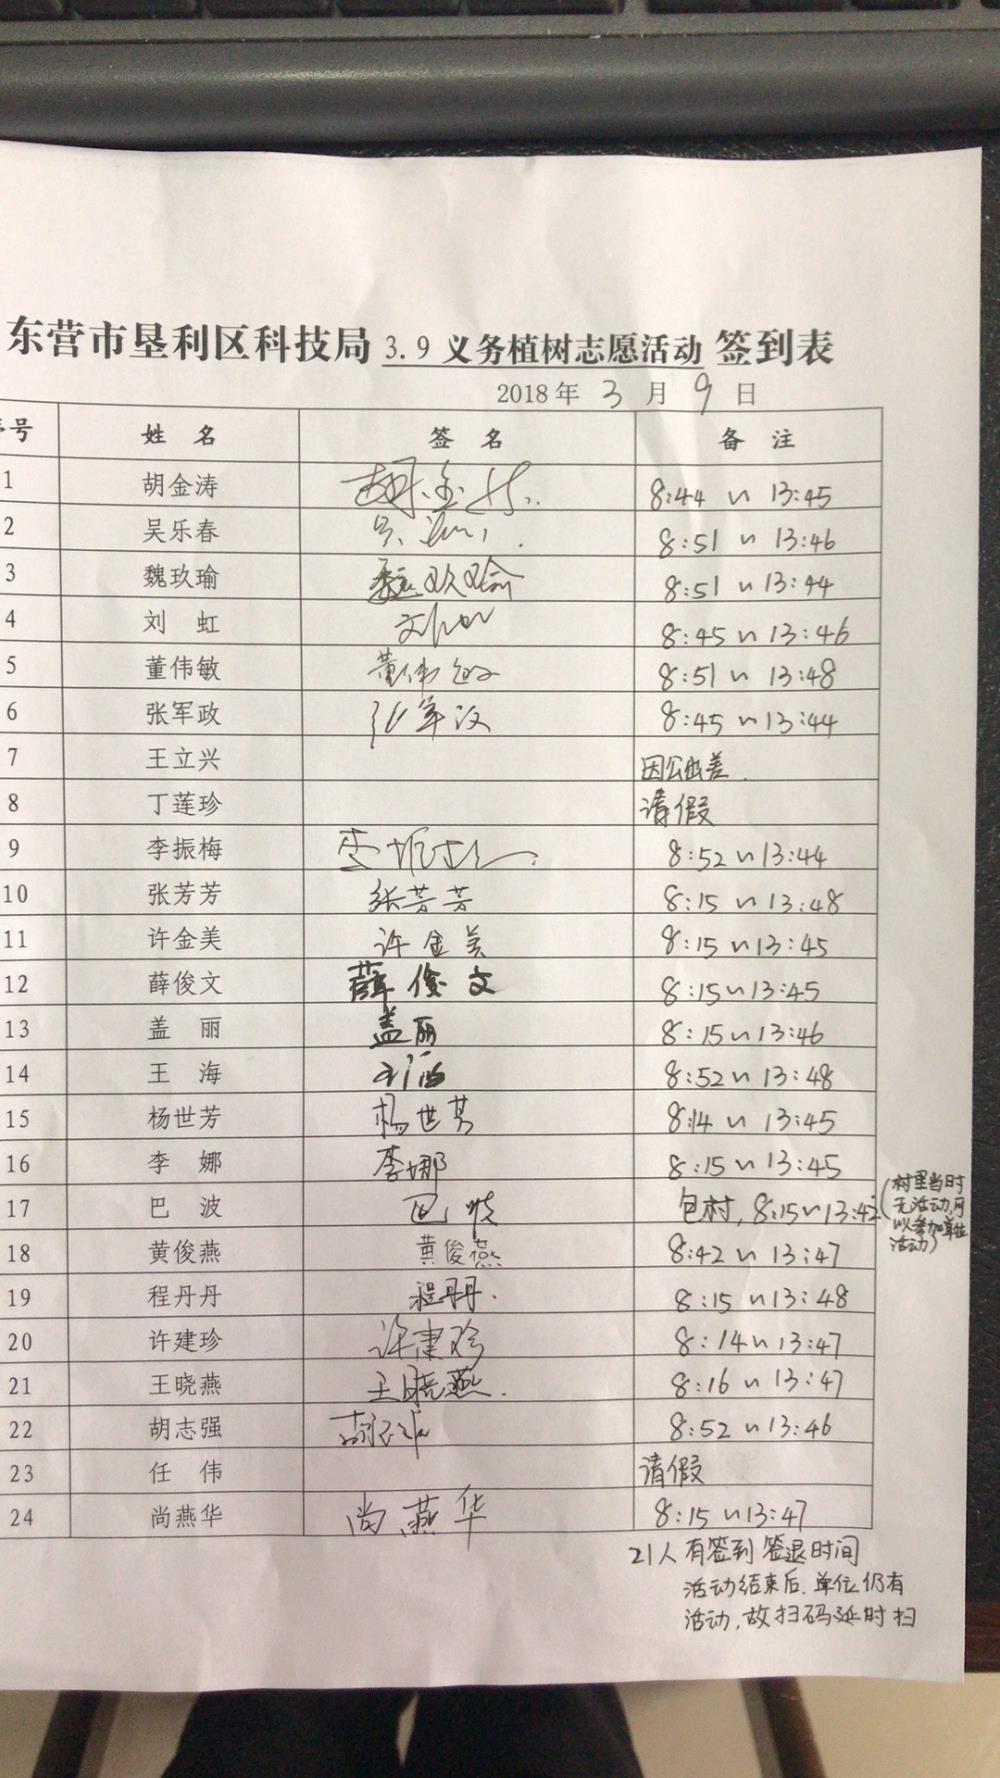 东营市垦利区科技局 3.9 义务植树志愿活动 签到表
2018年 3 月 9 日
序号 姓 名 签 名 备 注
1 胡金涛 胡金涛 8:44 ~ 13:45
2 吴乐春 8:51 ~ 13:46
3 魏玖瑜 魏玖瑜 8:51 ~ 13:44
4 刘 虹 刘虹 8:45 ~ 13:46
5 董伟敏 董伟敏 8:51 ~ 13:48
6 张军政 张军政 8:45 ~ 13:44
7 王立兴 因公出差.
8 丁莲珍 请假
9 李振梅 李振梅 8:52 ~ 13:44
10 张芳芳 张芳芳 8:15 ~ 13:48
11 许金美 许金美 8:15 ~ 13:45
12 薛俊文 薛俊文 8:15 ~ 13:45
13 盖 丽 盖丽 8:15 ~ 13:46
14 王 海 王海 8:52 ~ 13:48
15 杨世芳 杨世芳 8:14 ~ 13:45
16 李 娜 李娜 8:15 ~ 13:45
17 巴 波 巴波 包村, 8:15 ~ 13:42 (村里当时
无活动,可
以参加单位
活动)
18 黄俊燕 黄俊燕 8:42 ~ 13:47
19 程丹丹 程丹丹. 8:15 ~ 13:48
20 许建珍 许建珍 8:14 ~ 13:47
21 王晓燕 王晓燕. 8:16 ~ 13:47
22 胡志强 胡志强 8:52 ~ 13:46
23 任 伟 请假
24 尚燕华 尚燕华 8:15 ~ 13:47
21人有签到 签退时间
活动结束后, 单位仍有
活动, 故扫码延时扫